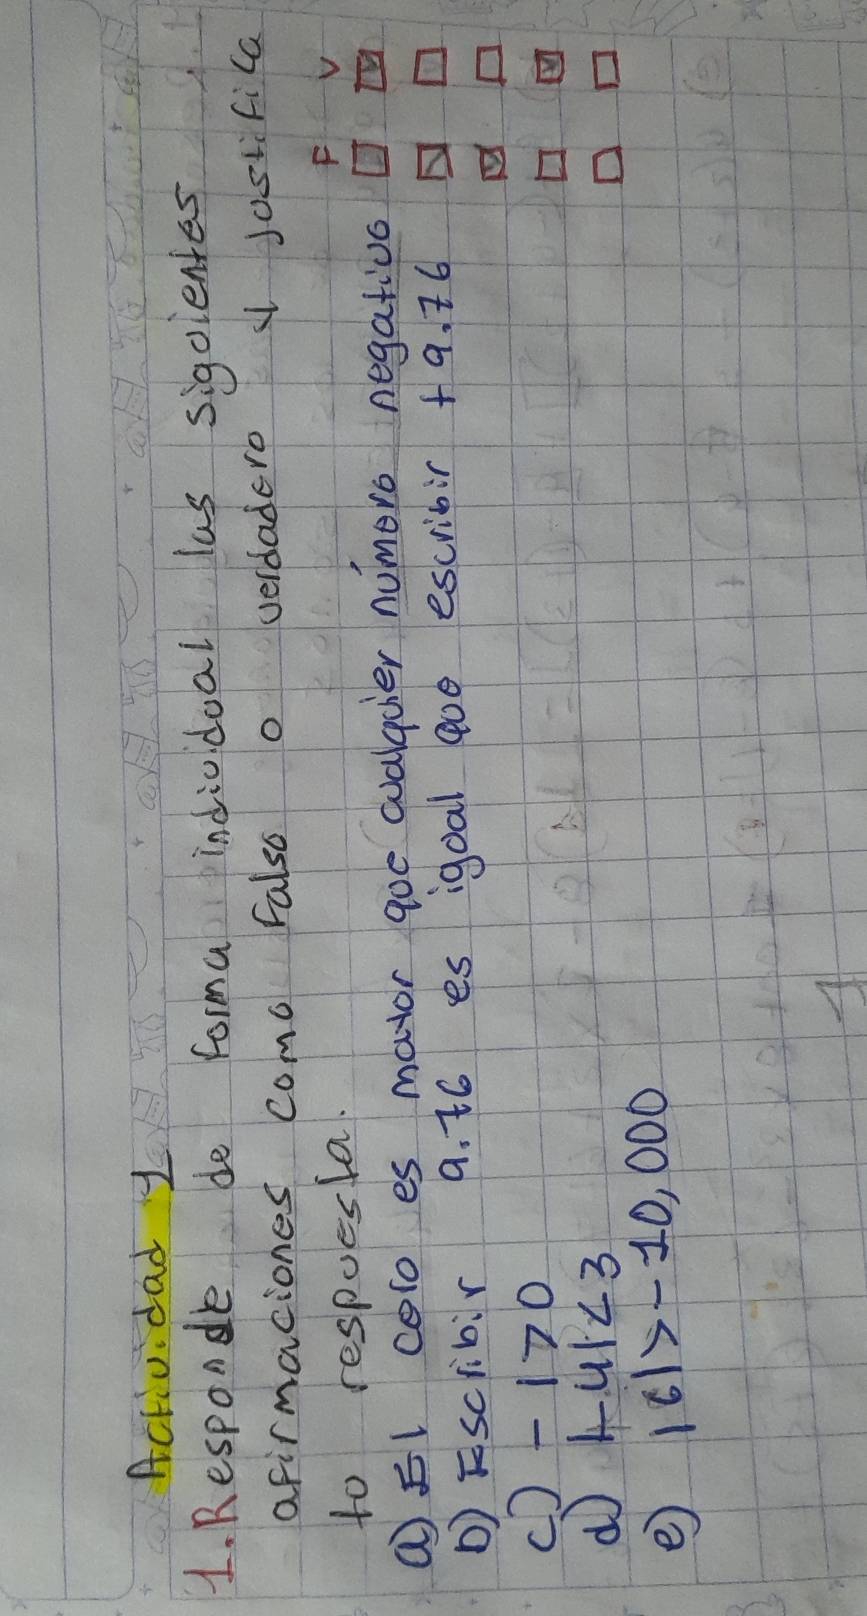 Actividad 1
1. Responde de forma individual las siguientes
afirmaciones como Falso o verdadero y justifica
to respuesta.
F V
a) El cero es mayor que cualquier número negativo
b) Escribir 9.76 es igual que escribir +9.76
c) -1>0
d) |-4|<3
e) |6|>-10,000